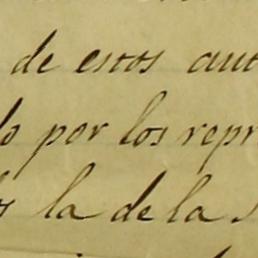 de estos aut
lo por los repr
s la de la s